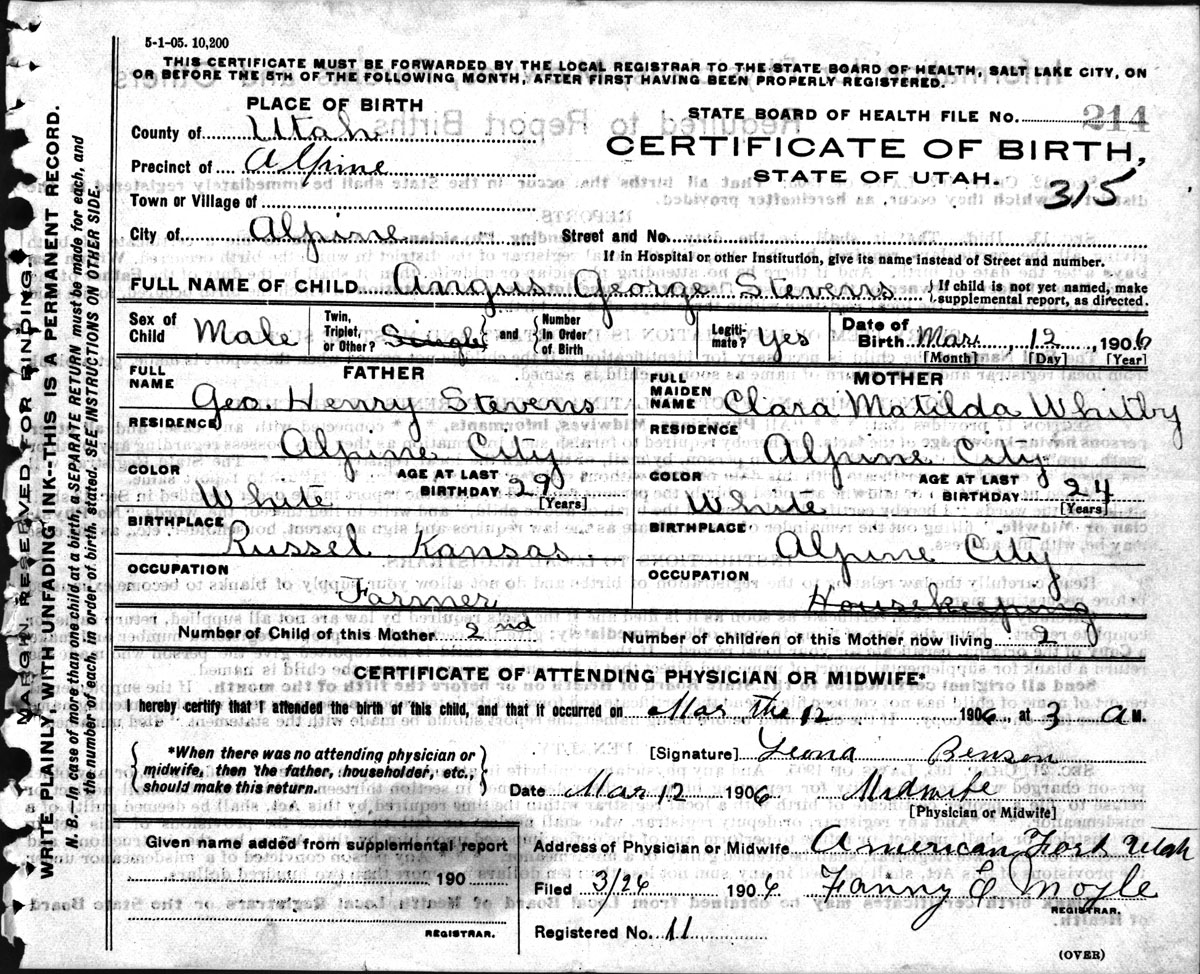 5-1-05. 10,200
THIS CERTIFICATE MUST BE FORWARDED BY THE LOCAL REGISTRAR TO THE STATE BOARD OF HEALTH, SALT LAKE CITY, ON
OR BEFORE THE 5TH OF THE FOLLOWING MONTH, AFTER FIRST HAVING BEEN PROPERLY REGISTERED.
PLACE OF BIRTH
County of Utah
Precinct of Alpine
Town or Village of
City of Alpine
STATE BOARD OF HEALTH FILE NO. 214
CERTIFICATE OF BIRTH,
STATE OF UTAH.
315
Street and No.
If in Hospital or other Institution, give its name instead of Street and number.
FULL NAME OF CHILD Angus George Stevens { If child is not yet named, make
supplemental report, as directed.
Sex of Child Male
Twin, Triplet, or Other? Single } and { Number in Order of Birth
Legiti-mate? Yes
Date of Birth Mar. 12, 1906
[Month] [Day] [Year]
FATHER
FULL NAME Geo. Henry Stevens
RESIDENCE Alpine City
COLOR White
AGE AT LAST BIRTHDAY 29 [Years]
BIRTHPLACE Russel Kansas.
OCCUPATION Farmer
MOTHER
FULL MAIDEN NAME Clara Matilda Whitby
RESIDENCE Alpine City
COLOR White
AGE AT LAST BIRTHDAY 24 [Years]
BIRTHPLACE Alpine City
OCCUPATION Housekeeping
Number of Child of this Mother 2nd
Number of children of this Mother now living 2
CERTIFICATE OF ATTENDING PHYSICIAN OR MIDWIFE*
I hereby certify that I attended the birth of this child, and that it occurred on Mar the 12 1906, at 3 A M.
*When there was no attending physician or
midwife, then the father, householder, etc.,
should make this return.
[Signature] Leona Benson
Date Mar 12 1906. Midwife
[Physician or Midwife]
Given name added from supplemental report
190
REGISTRAR.
Address of Physician or Midwife American Fork Utah
Filed 3/26 1906 Fanny E Moyle
REGISTRAR.
Registered No. 11
(OVER)
MARGIN RESERVED FOR BINDING
WRITE PLAINLY, WITH UNFADING INK--THIS IS A PERMANENT RECORD.
N. B. In case of more than one child at a birth, a SEPARATE RETURN must be made for each, and
the number of each, in order of birth, stated. SEE INSTRUCTIONS ON OTHER SIDE.